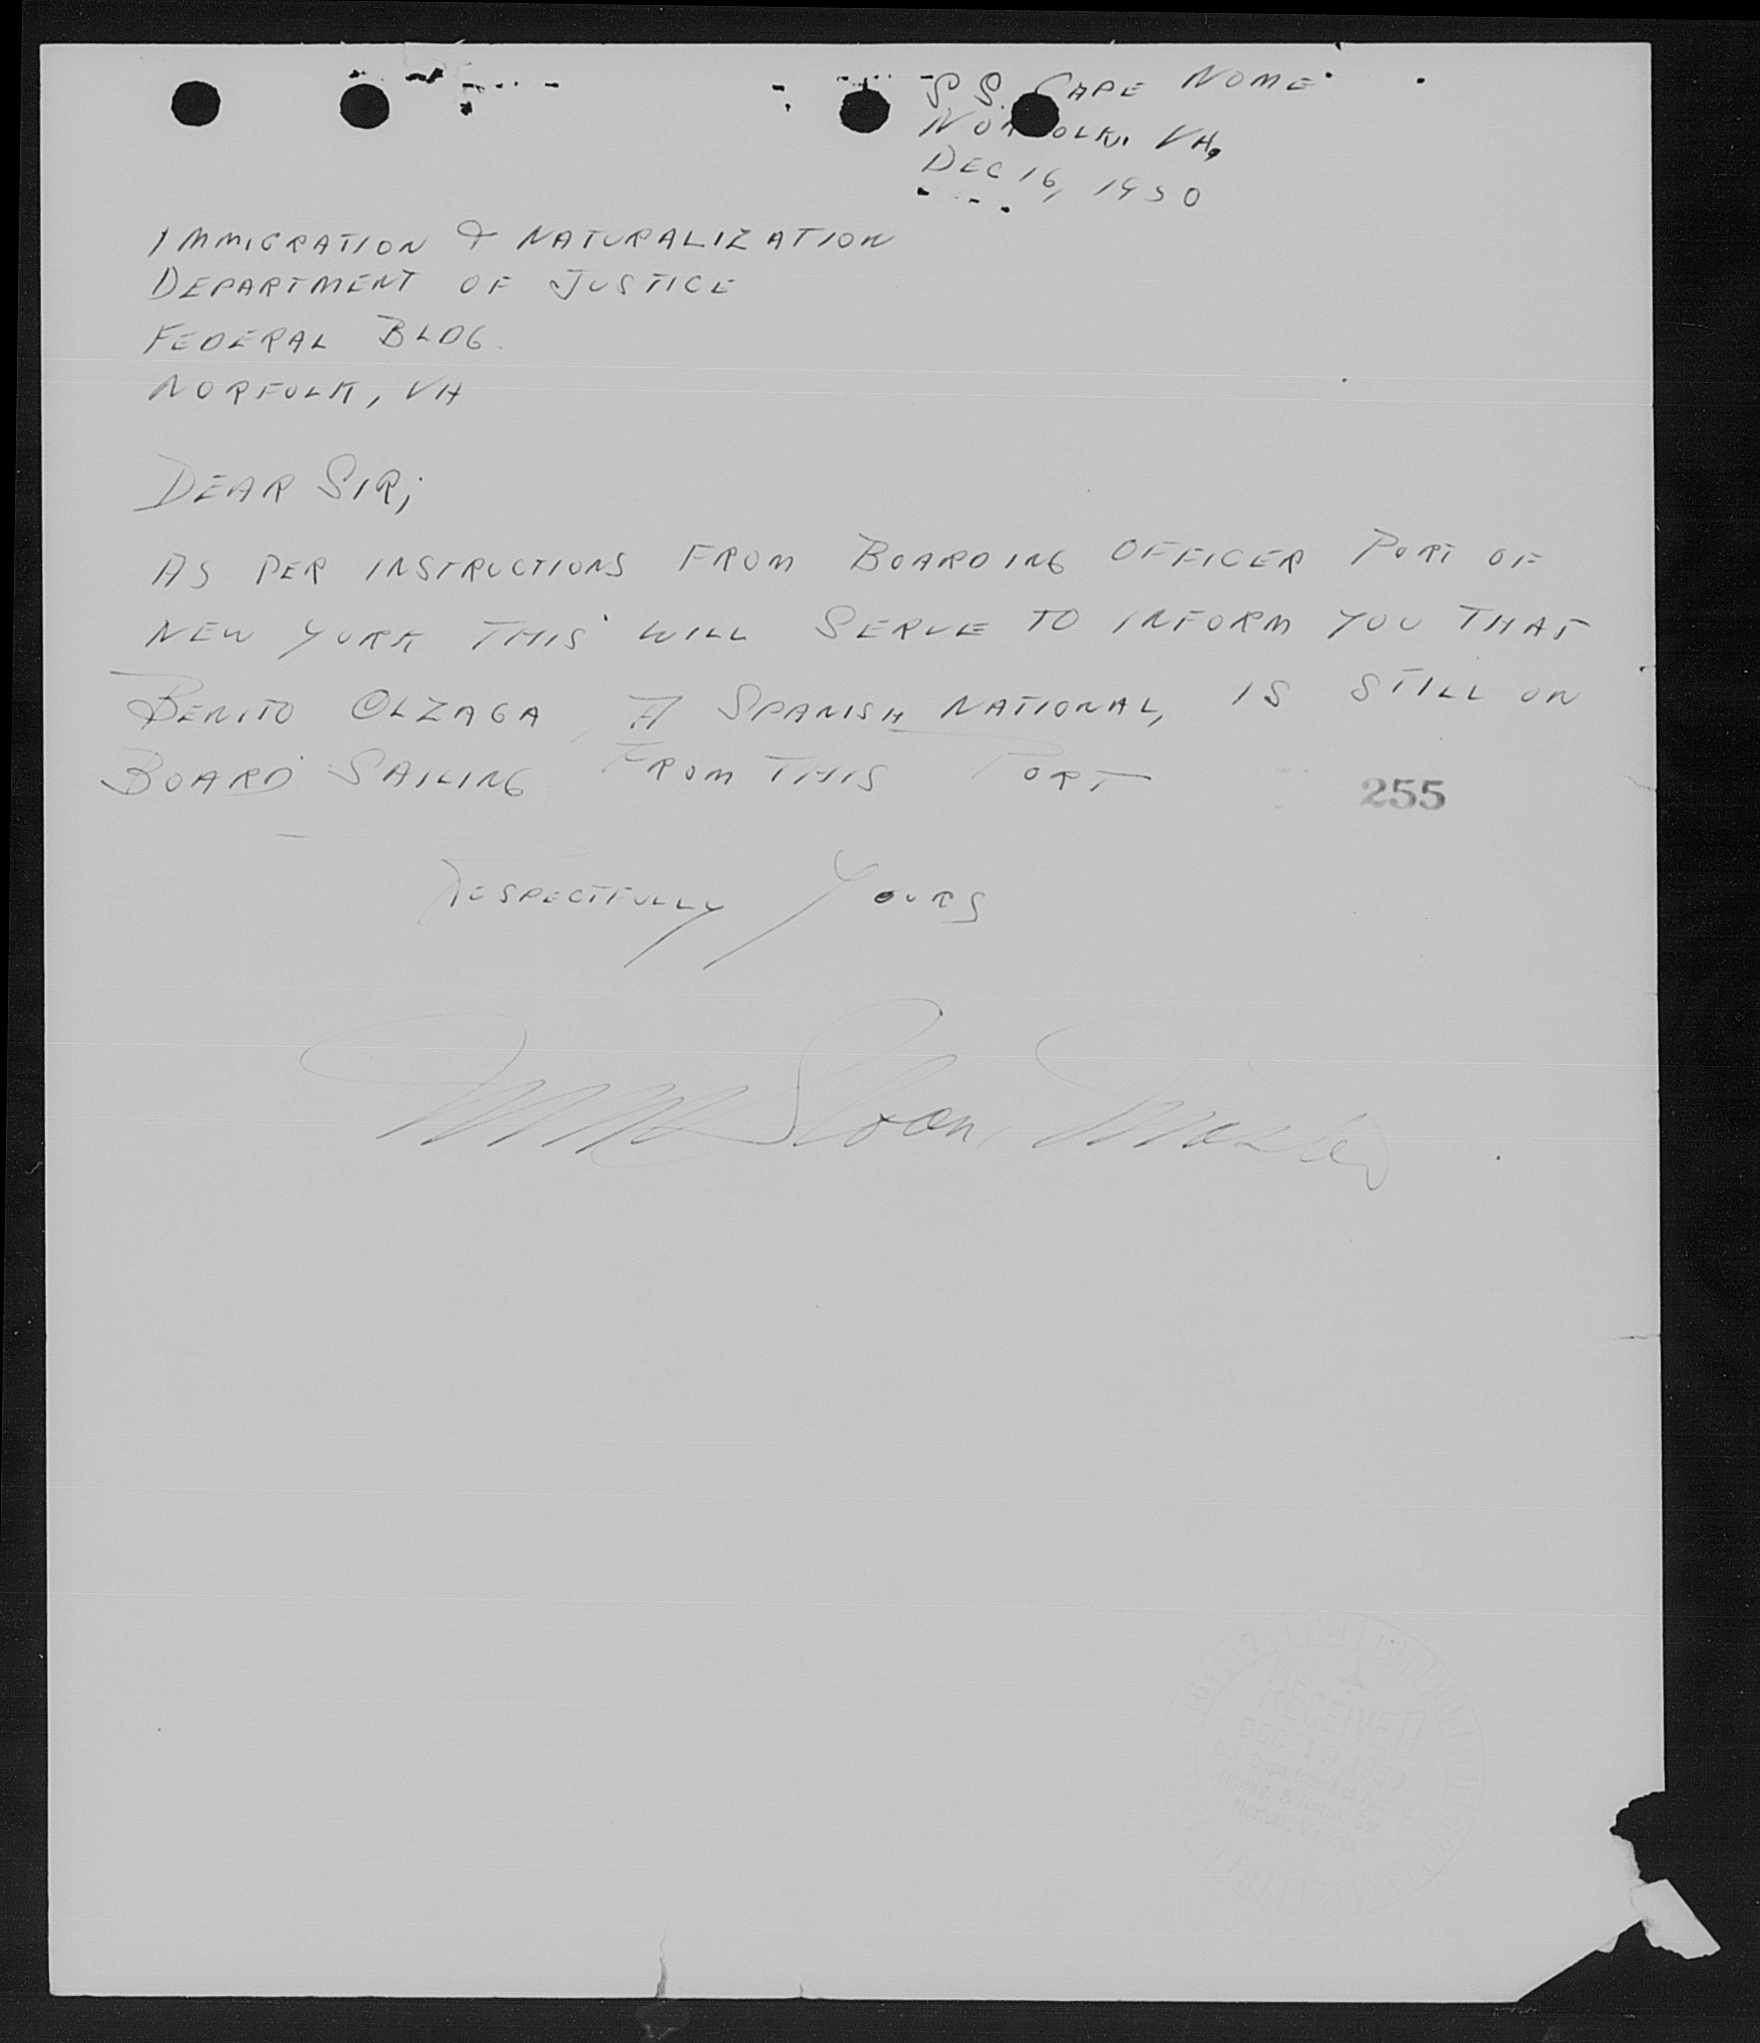 S.S. CAPE NOME
NORFOLK, VA,
DEC 16, 1950
IMMIGRATION & NATURALIZATION
DEPARTMENT OF JUSTICE
FEDERAL BLDG.
NORFOLK, VA
DEAR SIR;
AS PER INSTRUCTIONS FROM BOARDING OFFICER PORT OF
NEW YORK THIS WILL SERVE TO INFORM YOU THAT
BENITO OLZAGA, A SPANISH NATIONAL, IS STILL ON
BOARD SAILING FROM THIS PORT
255
RESPECTFULLY YOURS
Sloan, Master
RECEIVED